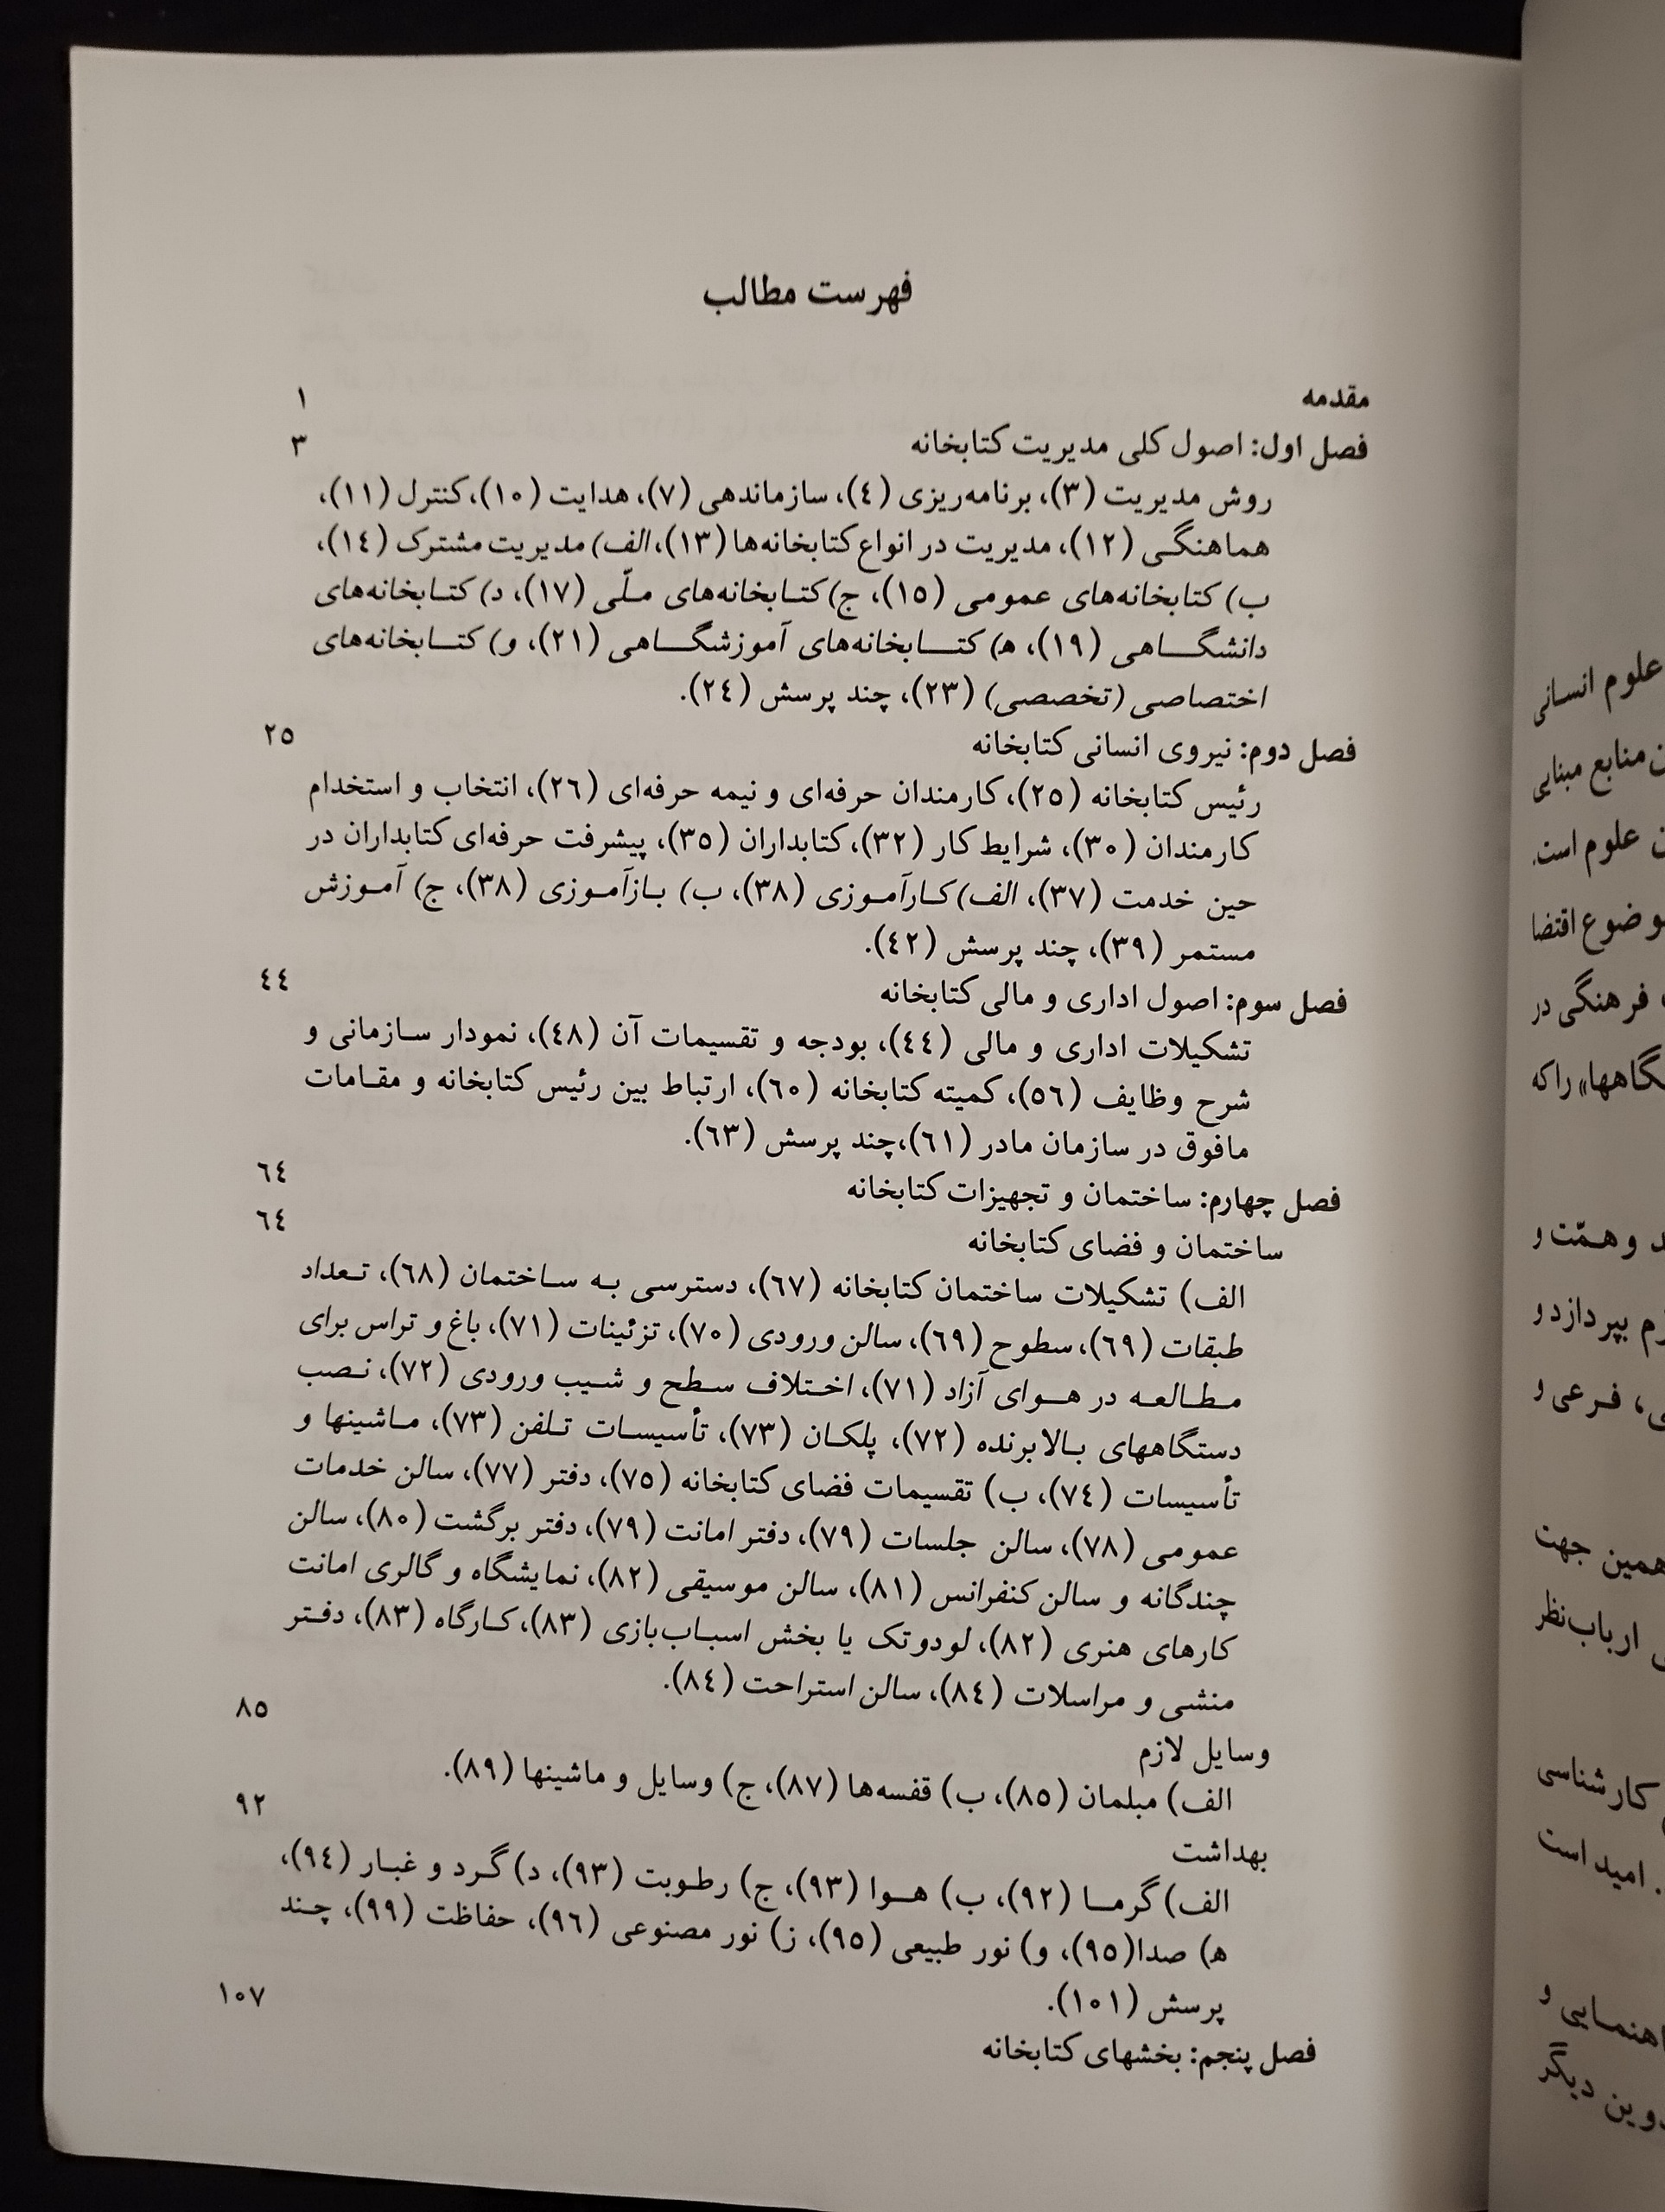 فهرست مطالب
مقدمه ۱
فصل اول: اصول کلی مدیریت کتابخانه ۳
روش مدیریت (۳)، برنامه‌ریزی (٤)، سازماندهی (۷)، هدایت (۱۰)، کنترل (۱۱)،
هماهنگی (۱۲)، مدیریت در انواع کتابخانه‌ها (۱۳)، الف) مدیریت مشترک (۱٤)،
ب) کتابخانه‌های عمومی (۱٥)، ج) کتابخانه‌های ملّی (۱۷)، د) کتابخانه‌های
دانشگاهی (۱۹)، ه‍) کتابخانه‌های آموزشگاهی (۲۱)، و) کتابخانه‌های
اختصاصی (تخصصی) (۲۳)، چند پرسش (۲٤).
فصل دوم: نیروی انسانی کتابخانه ۲٥
رئیس کتابخانه (۲٥)، کارمندان حرفه‌ای و نیمه حرفه‌ای (۲٦)، انتخاب و استخدام
کارمندان (۳۰)، شرایط کار (۳۲)، کتابداران (۳٥)، پیشرفت حرفه‌ای کتابداران در
حین خدمت (۳۷)، الف) کارآموزی (۳۸)، ب) بازآموزی (۳۸)، ج) آموزش
مستمر (۳۹)، چند پرسش (٤۲).
فصل سوم: اصول اداری و مالی کتابخانه ٤٤
تشکیلات اداری و مالی (٤٤)، بودجه و تقسیمات آن (٤۸)، نمودار سازمانی و
شرح وظایف (٥٦)، کمیته کتابخانه (٦۰)، ارتباط بین رئیس کتابخانه و مقامات
مافوق در سازمان مادر (٦۱)، چند پرسش (٦۳).
فصل چهارم: ساختمان و تجهیزات کتابخانه ٦٤
ساختمان و فضای کتابخانه ٦٤
الف) تشکیلات ساختمان کتابخانه (٦۷)، دسترسی به ساختمان (٦۸)، تعداد
طبقات (٦۹)، سطوح (٦۹)، سالن ورودی (۷۰)، تزئینات (۷۱)، باغ و تراس برای
مطالعه در هوای آزاد (۷۱)، اختلاف سطح و شیب ورودی (۷۲)، نصب
دستگاههای بالابرنده (۷۲)، پلکان (۷۳)، تأسیسات تلفن (۷۳)، ماشینها و
تأسیسات (۷٤)، ب) تقسیمات فضای کتابخانه (۷٥)، دفتر (۷۷)، سالن خدمات
عمومی (۷۸)، سالن جلسات (۷۹)، دفتر امانت (۷۹)، دفتر برگشت (۸۰)، سالن
چندگانه و سالن کنفرانس (۸۱)، سالن موسیقی (۸۲)، نمایشگاه و گالری امانت
کارهای هنری (۸۲)، لودوتک یا بخش اسباب‌بازی (۸۳)، کارگاه (۸۳)، دفتر
منشی و مراسلات (۸٤)، سالن استراحت (۸٤).
وسایل لازم ۸٥
الف) مبلمان (۸٥)، ب) قفسه‌ها (۸۷)، ج) وسایل و ماشینها (۸۹).
بهداشت ۹۲
الف) گرما (۹۲)، ب) هوا (۹۳)، ج) رطوبت (۹۳)، د) گرد و غبار (۹٤)،
ه‍) صدا (۹٥)، و) نور طبیعی (۹٥)، ز) نور مصنوعی (۹٦)، حفاظت (۹۹)، چند
پرسش (۱۰۱).
فصل پنجم: بخشهای کتابخانه ۱۰۷
علوم انسانی
منابع مبنایی
علوم است.
اقتضا
فرهنگی در
را که
و همّت و
بپردازد و
فرعی و
همین جهت
ارباب‌نظر
کارشناسی
. امید است
و
دیگر